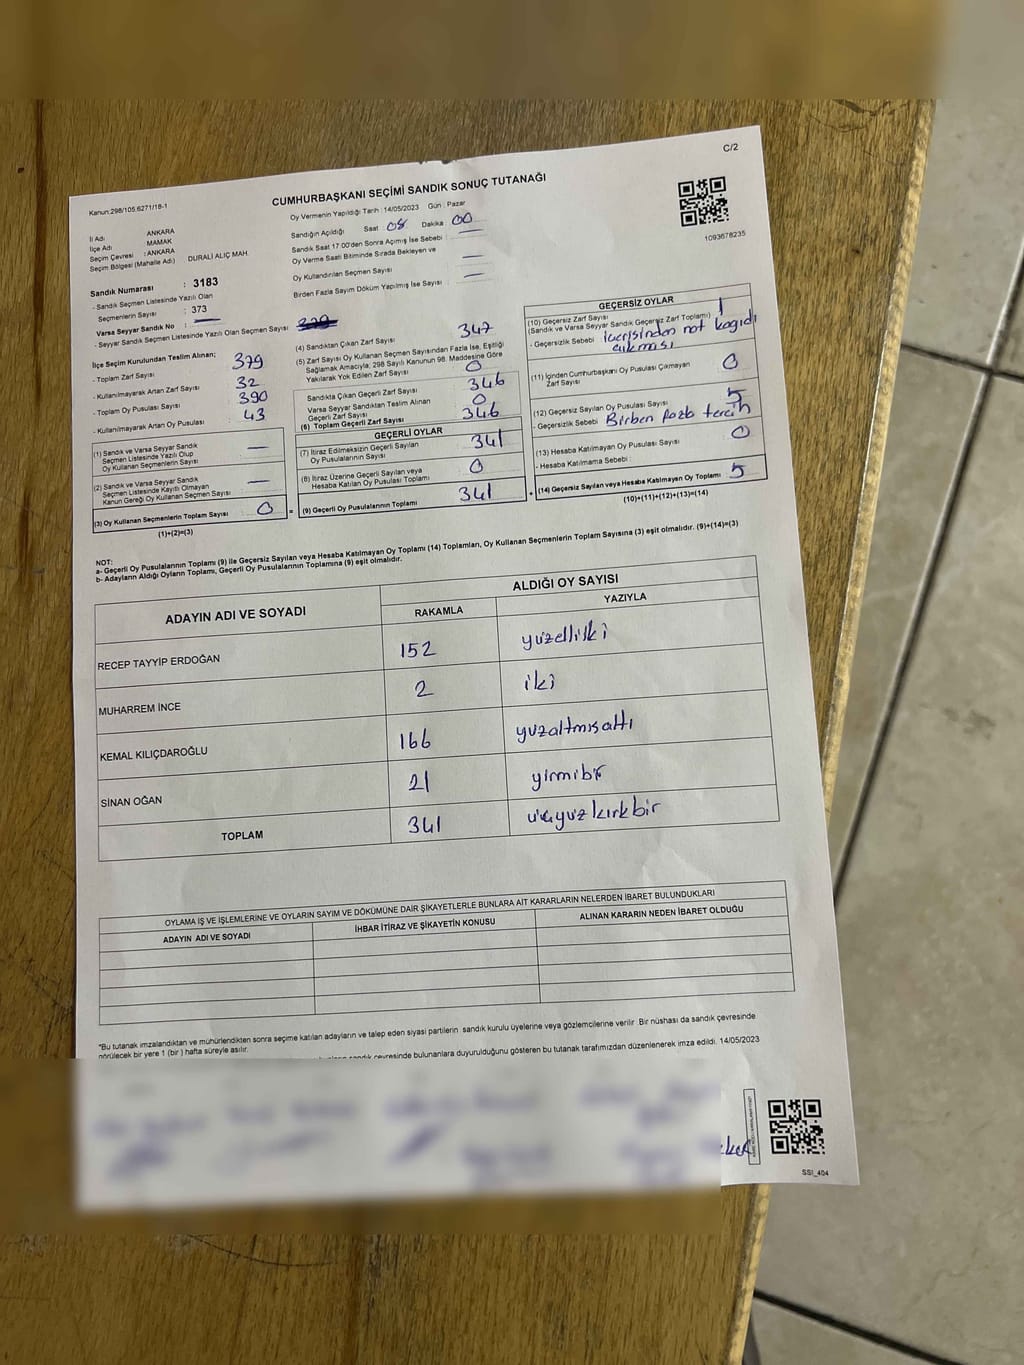 C/2
Kanun:298/105,6271/18-1
CUMHURBAŞKANI SEÇİMİ SANDIK SONUÇ TUTANAĞI
1093678235
İl Adı ANKARA
İlçe Adı MAMAK
Seçim Çevresi : ANKARA
Seçim Bölgesi (Mahalle Adı) DURALİ ALIÇ MAH.
Sandık Numarası : 3183
- Sandık Seçmen Listesinde Yazılı Olan
Seçmenlerin Sayısı : 373
Varsa Seyyar Sandık No : —
- Seyyar Sandık Seçmen Listesinde Yazılı Olan Seçmen Sayısı
Oy Vermenin Yapıldığı Tarih : 14/05/2023 Gün : Pazar
Sandığın Açıldığı Saat 08 Dakika 00
Sandık Saat 17:00'den Sonra Açılmış İse Sebebi : —
Oy Verme Saati Bitiminde Sırada Bekleyen ve
Oy Kullandırılan Seçmen Sayısı —
Birden Fazla Sayım Döküm Yapılmış İse Sayısı : —
İlçe Seçim Kurulundan Teslim Alınan;
- Toplam Zarf Sayısı 379
- Kullanılmayarak Artan Zarf Sayısı 32
- Toplam Oy Pusulası Sayısı 390
- Kullanılmayarak Artan Oy Pusulası 43
(1) Sandık ve Varsa Seyyar Sandık
Seçmen Listesinde Yazılı Olup
Oy Kullanan Seçmenlerin Sayısı —
(2) Sandık ve Varsa Seyyar Sandık
Seçmen Listesinde Kayıtlı Olmayan
Kanun Gereği Oy Kullanan Seçmen Sayısı —
(3) Oy Kullanan Seçmenlerin Toplam Sayısı 0
(1)+(2)=(3)
(4) Sandıktan Çıkan Zarf Sayısı 347
(5) Zarf Sayısı Oy Kullanan Seçmen Sayısından Fazla İse, Eşitliği
Sağlamak Amacıyla; 298 Sayılı Kanunun 98. Maddesine Göre
Yakılarak Yok Edilen Zarf Sayısı 0
Sandıkta Çıkan Geçerli Zarf Sayısı 346
Varsa Seyyar Sandıktan Teslim Alınan
Geçerli Zarf Sayısı 0
(6) Toplam Geçerli Zarf Sayısı 346
GEÇERLİ OYLAR
(7) İtiraz Edilmeksizin Geçerli Sayılan
Oy Pusulalarının Sayısı 341
(8) İtiraz Üzerine Geçerli Sayılan veya
Hesaba Katılan Oy Pusulası Toplamı 0
(9) Geçerli Oy Pusulalarının Toplamı 341
GEÇERSİZ OYLAR
(10) Geçersiz Zarf Sayısı
(Sandık ve Varsa Seyyar Sandık Geçersiz Zarf Toplamı) 1
- Geçersizlik Sebebi İçerisinden not kağıdı
çıkması
(11) İçinden Cumhurbaşkanı Oy Pusulası Çıkmayan
Zarf Sayısı 0
(12) Geçersiz Sayılan Oy Pusulası Sayısı 5
- Geçersizlik Sebebi Birben fazla tercih
(13) Hesaba Katılmayan Oy Pusulası Sayısı 0
- Hesaba Katılmama Sebebi :
(14) Geçersiz Sayılan veya Hesaba Katılmayan Oy Toplamı 5
(10)+(11)+(12)+(13)=(14)
NOT:
a- Geçerli Oy Pusulalarının Toplamı (9) ile Geçersiz Sayılan veya Hesaba Katılmayan Oy Toplamı (14) Toplamları, Oy Kullanan Seçmenlerin Toplam Sayısına (3) eşit olmalıdır. (9)+(14)=(3)
b- Adayların Aldığı Oyların Toplamı, Geçerli Oy Pusulalarının Toplamına (9) eşit olmalıdır.
ADAYIN ADI VE SOYADI
ALDIĞI OY SAYISI
RAKAMLA YAZIYLA
RECEP TAYYİP ERDOĞAN 152 yüzelliiki
MUHARREM İNCE 2 iki
KEMAL KILIÇDAROĞLU 166 yüzaltmışaltı
SİNAN OĞAN 21 yirmibir
TOPLAM 341 üçyüzkırkbir
OYLAMA İŞ VE İŞLEMLERİNE VE OYLARIN SAYIM VE DÖKÜMÜNE DAİR ŞİKAYETLERLE BUNLARA AİT KARARLARIN NELERDEN İBARET BULUNDUKLARI
ADAYIN ADI VE SOYADI İHBAR İTİRAZ VE ŞİKAYETİN KONUSU ALINAN KARARIN NEDEN İBARET OLDUĞU
*Bu tutanak imzalandıktan ve mühürlendikten sonra seçime katılan adayların ve talep eden siyasi partilerin sandık kurulu üyelerine veya gözlemcilerine verilir Bir nüshası da sandık çevresinde
görülecek bir yere 1 (bir ) hafta süreyle asılır.
sandık çevresinde bulunanlara duyurulduğunu gösteren bu tutanak tarafımızdan düzenlenerek imza edildi. 14/05/2023
SSI_404